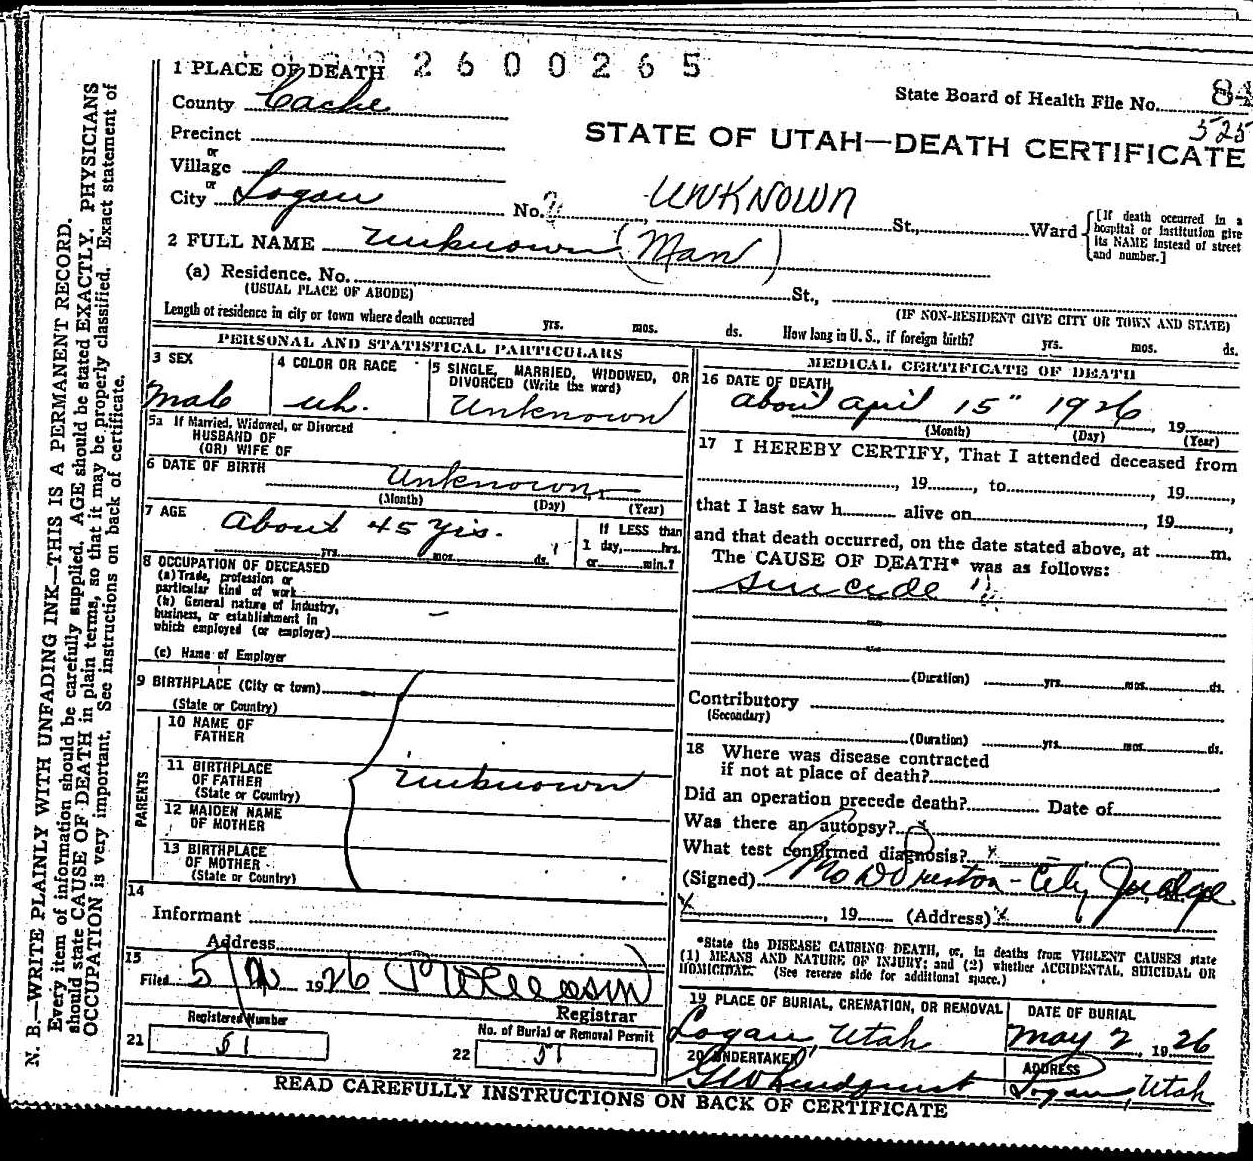 2600265
1 PLACE OF DEATH
State Board of Health File No. 84
525
County Cache
STATE OF UTAH—DEATH CERTIFICATE
Precinct
or
Village
or
City Logan No. UNKNOWN St., Ward
[If death occurred in a hospital or institution give its NAME instead of street and number.]
2 FULL NAME unknown (Man)
(a) Residence. No. St.,
(USUAL PLACE OF ABODE) (IF NON-RESIDENT GIVE CITY OR TOWN AND STATE)
Length of residence in city or town where death occurred yrs. mos. ds. How long in U.S., if foreign birth? yrs. mos. ds.
PERSONAL AND STATISTICAL PARTICULARS
3 SEX
Male
4 COLOR OR RACE
wh.
5 SINGLE, MARRIED, WIDOWED, OR
DIVORCED (Write the word)
Unknown
5a If Married, Widowed, or Divorced
HUSBAND OF
(OR) WIFE OF
6 DATE OF BIRTH Unknown
(Month) (Day) (Year)
7 AGE About 45 yrs.
yrs. mos. ds.
If LESS than
1 day, hrs.
or min.?
8 OCCUPATION OF DECEASED
(a) Trade, profession or
particular kind of work
(b) General nature of industry,
business, or establishment in
which employed (or employer)
(c) Name of Employer
9 BIRTHPLACE (City or town)
(State or Country)
PARENTS
10 NAME OF
FATHER
11 BIRTHPLACE
OF FATHER
(State or Country)
unknown
12 MAIDEN NAME
OF MOTHER
13 BIRTHPLACE
OF MOTHER
(State or Country)
14
Informant
Address
15
Filed 5/ 1926
Registrar
Registered Number
21 51
No. of Burial or Removal Permit
22 51
MEDICAL CERTIFICATE OF DEATH
16 DATE OF DEATH
about april 15" 1926, 19
(Month) (Day) (Year)
17 I HEREBY CERTIFY, That I attended deceased from
, 19, to , 19,
that I last saw h alive on , 19,
and that death occurred, on the date stated above, at m.
The CAUSE OF DEATH* was as follows:
suicide
(Duration) yrs. mos. ds.
Contributory
(Secondary)
(Duration) yrs. mos. ds.
18 Where was disease contracted
if not at place of death?
Did an operation precede death? Date of
Was there an autopsy?
What test confirmed diagnosis? x
(Signed) City Judge
x , 19 (Address) x
*State the DISEASE CAUSING DEATH, or, in deaths from VIOLENT CAUSES state
(1) MEANS AND NATURE OF INJURY; and (2) whether ACCIDENTAL, SUICIDAL OR
HOMICIDAL. (See reverse side for additional space.)
19 PLACE OF BURIAL, CREMATION, OR REMOVAL
Logan, Utah
DATE OF BURIAL
May 2, 1926
20 UNDERTAKER
ADDRESS
Logan, Utah
READ CAREFULLY INSTRUCTIONS ON BACK OF CERTIFICATE
N. B.—WRITE PLAINLY WITH UNFADING INK—THIS IS A PERMANENT RECORD.
Every item of information should be carefully supplied. AGE should be stated EXACTLY. PHYSICIANS
should state CAUSE OF DEATH in plain terms, so that it may be properly classified. Exact statement of
OCCUPATION is very important. See instructions on back of certificate.